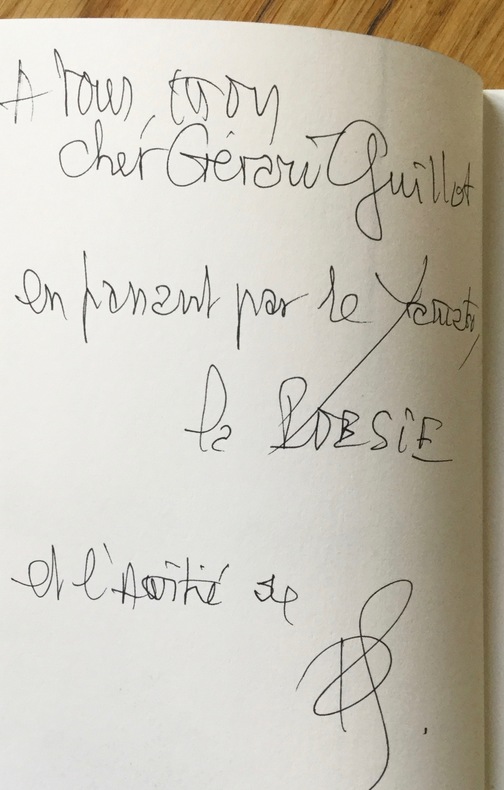 A vous, mon
cher Gérard Guillot
en passant par le
la POESiE
et l'Amitié de